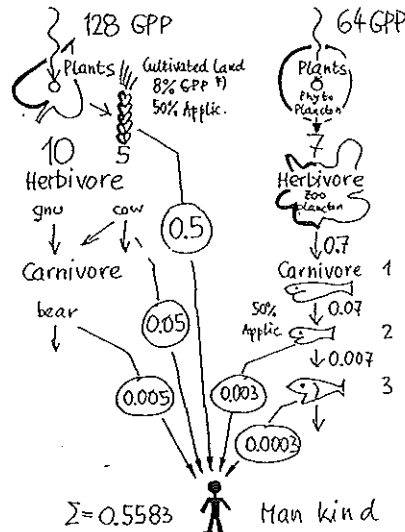 128 GPP
Plants
Cultivated Land
8% GPP *)
50% Applic.
10 5
Herbivore
gnu cow
Carnivore
bear
0.5
0.05
0.005
64 GPP
Plants
Phyto
Plancton
7
Herbivore
Zoo
plancton
0.7
Carnivore 1
0.07
50%
Applic.
2
0.007
3
0.003
0.0003
Σ=0.5583
Man kind